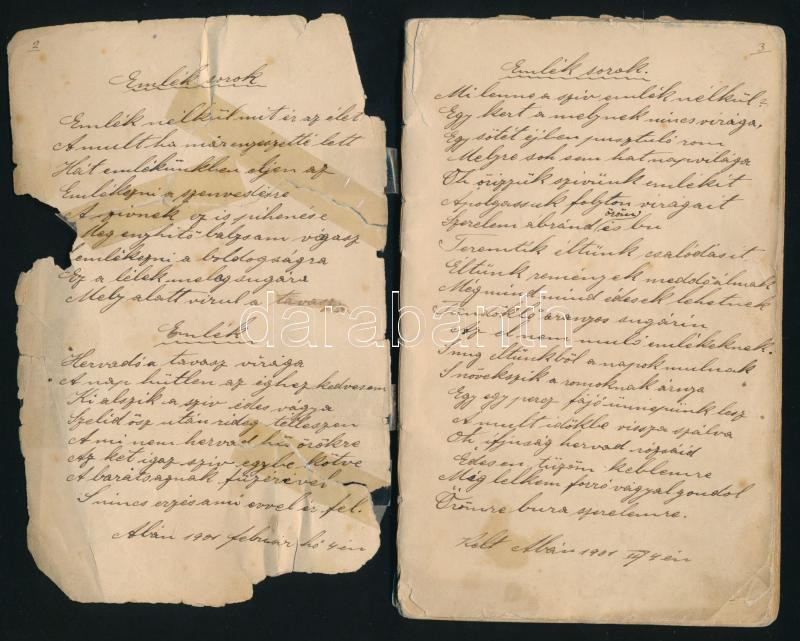 2
Emlék sorok
Emlék nélkül mit ér az élet
A mult ha már enyészetté lett
Hát emlékünkben éljen az
Emlékezni a szenvedésre
A szivnek ez is pihenése
Meg enyhitő balzsam vigasz
Emlékezni a boldogságra
Ez a lélek meleg sugára
Mely alatt virul a tavasza
Emlék
Hervadó a tavasz virága
A nap hütlen az éghez kedvesem
Ki alszik a sziv édes vágya
Szelid ősz után rideg tél leszen
A mi nem hervad hű örökre
Az két igaz sziv egybe kötve
A barátságnak füzérével
S nincs érzés ami evvel ér fel.
Abán 1901 február hó 4 én
3
Emlék sorok.
Mi lenne a sziv emlék nélkül?
Egy kert a melynek nincs virága,
Egy sötét éjben pusztuló rom
Melyre soh sem hat napvilága
Óh őrizzük szivünk emlékit
Ápolgassuk folyton virágait
Szerelem ábránd öröm és bu
Teremtik éltünk csalódásit
Eltünk remények meddő álmak
Még mind mind édesek lehetnek
Tündöklő aranyos sugárin
Az el nem muló emlékeknek.
S mig éltünkből a napok mulnak
S növekszik a romoknak árnya
Egy egy percz fájó ünnepünk lesz
A mult időkbe vissza szálva
Óh ifjuság hervad rózsáid
Édesen tüzöm keblemre
Még lelkem forró vágyal gondol
Örömre bura szerelemre.
Kelt Abán 1901 II/4 én
darabanth